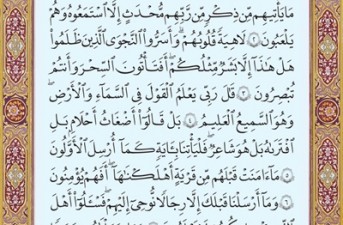 مَا يَأْتِيهِم مِّن ذِكْرٍ مِّن رَّبِّهِم مُّحْدَثٍ إِلَّا ٱسْتَمَعُوهُ وَهُمْ
يَلْعَبُونَ ٢ لَاهِيَةً قُلُوبُهُمْ وَأَسَرُّوا۟ ٱلنَّجْوَى ٱلَّذِينَ ظَلَمُوا۟
هَلْ هَٰذَآ إِلَّا بَشَرٌ مِّثْلُكُمْ أَفَتَأْتُونَ ٱلسِّحْرَ وَأَنتُمْ
تُبْصِرُونَ ٣ قَالَ رَبِّى يَعْلَمُ ٱلْقَوْلَ فِى ٱلسَّمَآءِ وَٱلْأَرْضِ
وَهُوَ ٱلسَّمِيعُ ٱلْعَلِيمُ ٤ بَلْ قَالُوٓا۟ أَضْغَٰثُ أَحْلَٰمٍ بَلِ
ٱفْتَرَىٰهُ بَلْ هُوَ شَاعِرٌ فَلْيَأْتِنَا بِـَٔايَةٍ كَمَآ أُرْسِلَ ٱلْأَوَّلُونَ
٥ مَآ ءَامَنَتْ قَبْلَهُم مِّن قَرْيَةٍ أَهْلَكْنَٰهَآ أَفَهُمْ يُؤْمِنُونَ
٦ وَمَآ أَرْسَلْنَا قَبْلَكَ إِلَّا رِجَالًا نُّوحِىٓ إِلَيْهِمْ فَسْـَٔلُوٓا۟ أَهْلَ